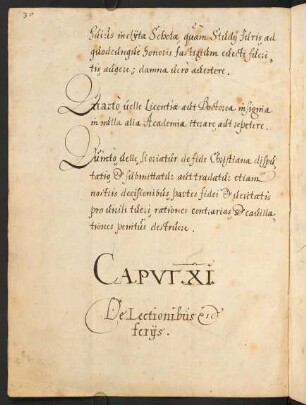 30
inclyta Scholæ, quàm Studij Iuris ad
quodcunque honoris fastigium evecti fueri,,
tis adigere; damna verò advertere.
Quarto velle Licentiæ aut Doctorea insignia
in nulla alia Academia iterare aut repetere.
Quinto velle si oriatur de fide Christiana dispu
tatio & submittatis aut tradatis etiam
nostris decisionibus partes fidei & veritatis
pro virili tueri rationes contrarias & cavilla
tiones penitus destruere.
CAPVT. XI.
De Lectionibus et
ferijs.